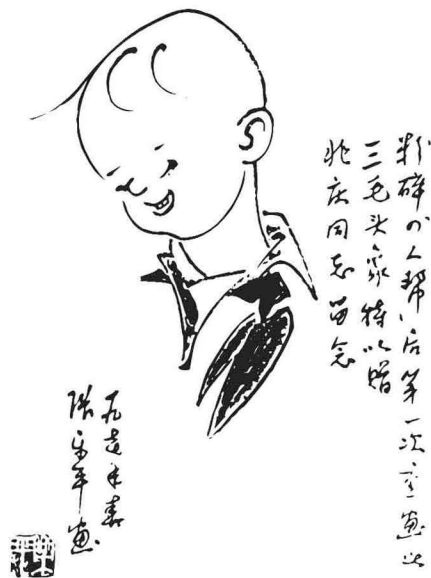 粉碎“四人帮”后第一次重画此
三毛头象特以赠
兆庆同志留念
一九七七年春
张乐平画